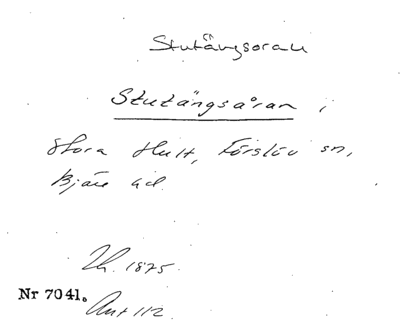 Stutängsoran
Stutängsåran i
Stora Hult, Förslöv sn,
Bjäre hd.
Uh. 1875.
Nr 7041.
Ant 112